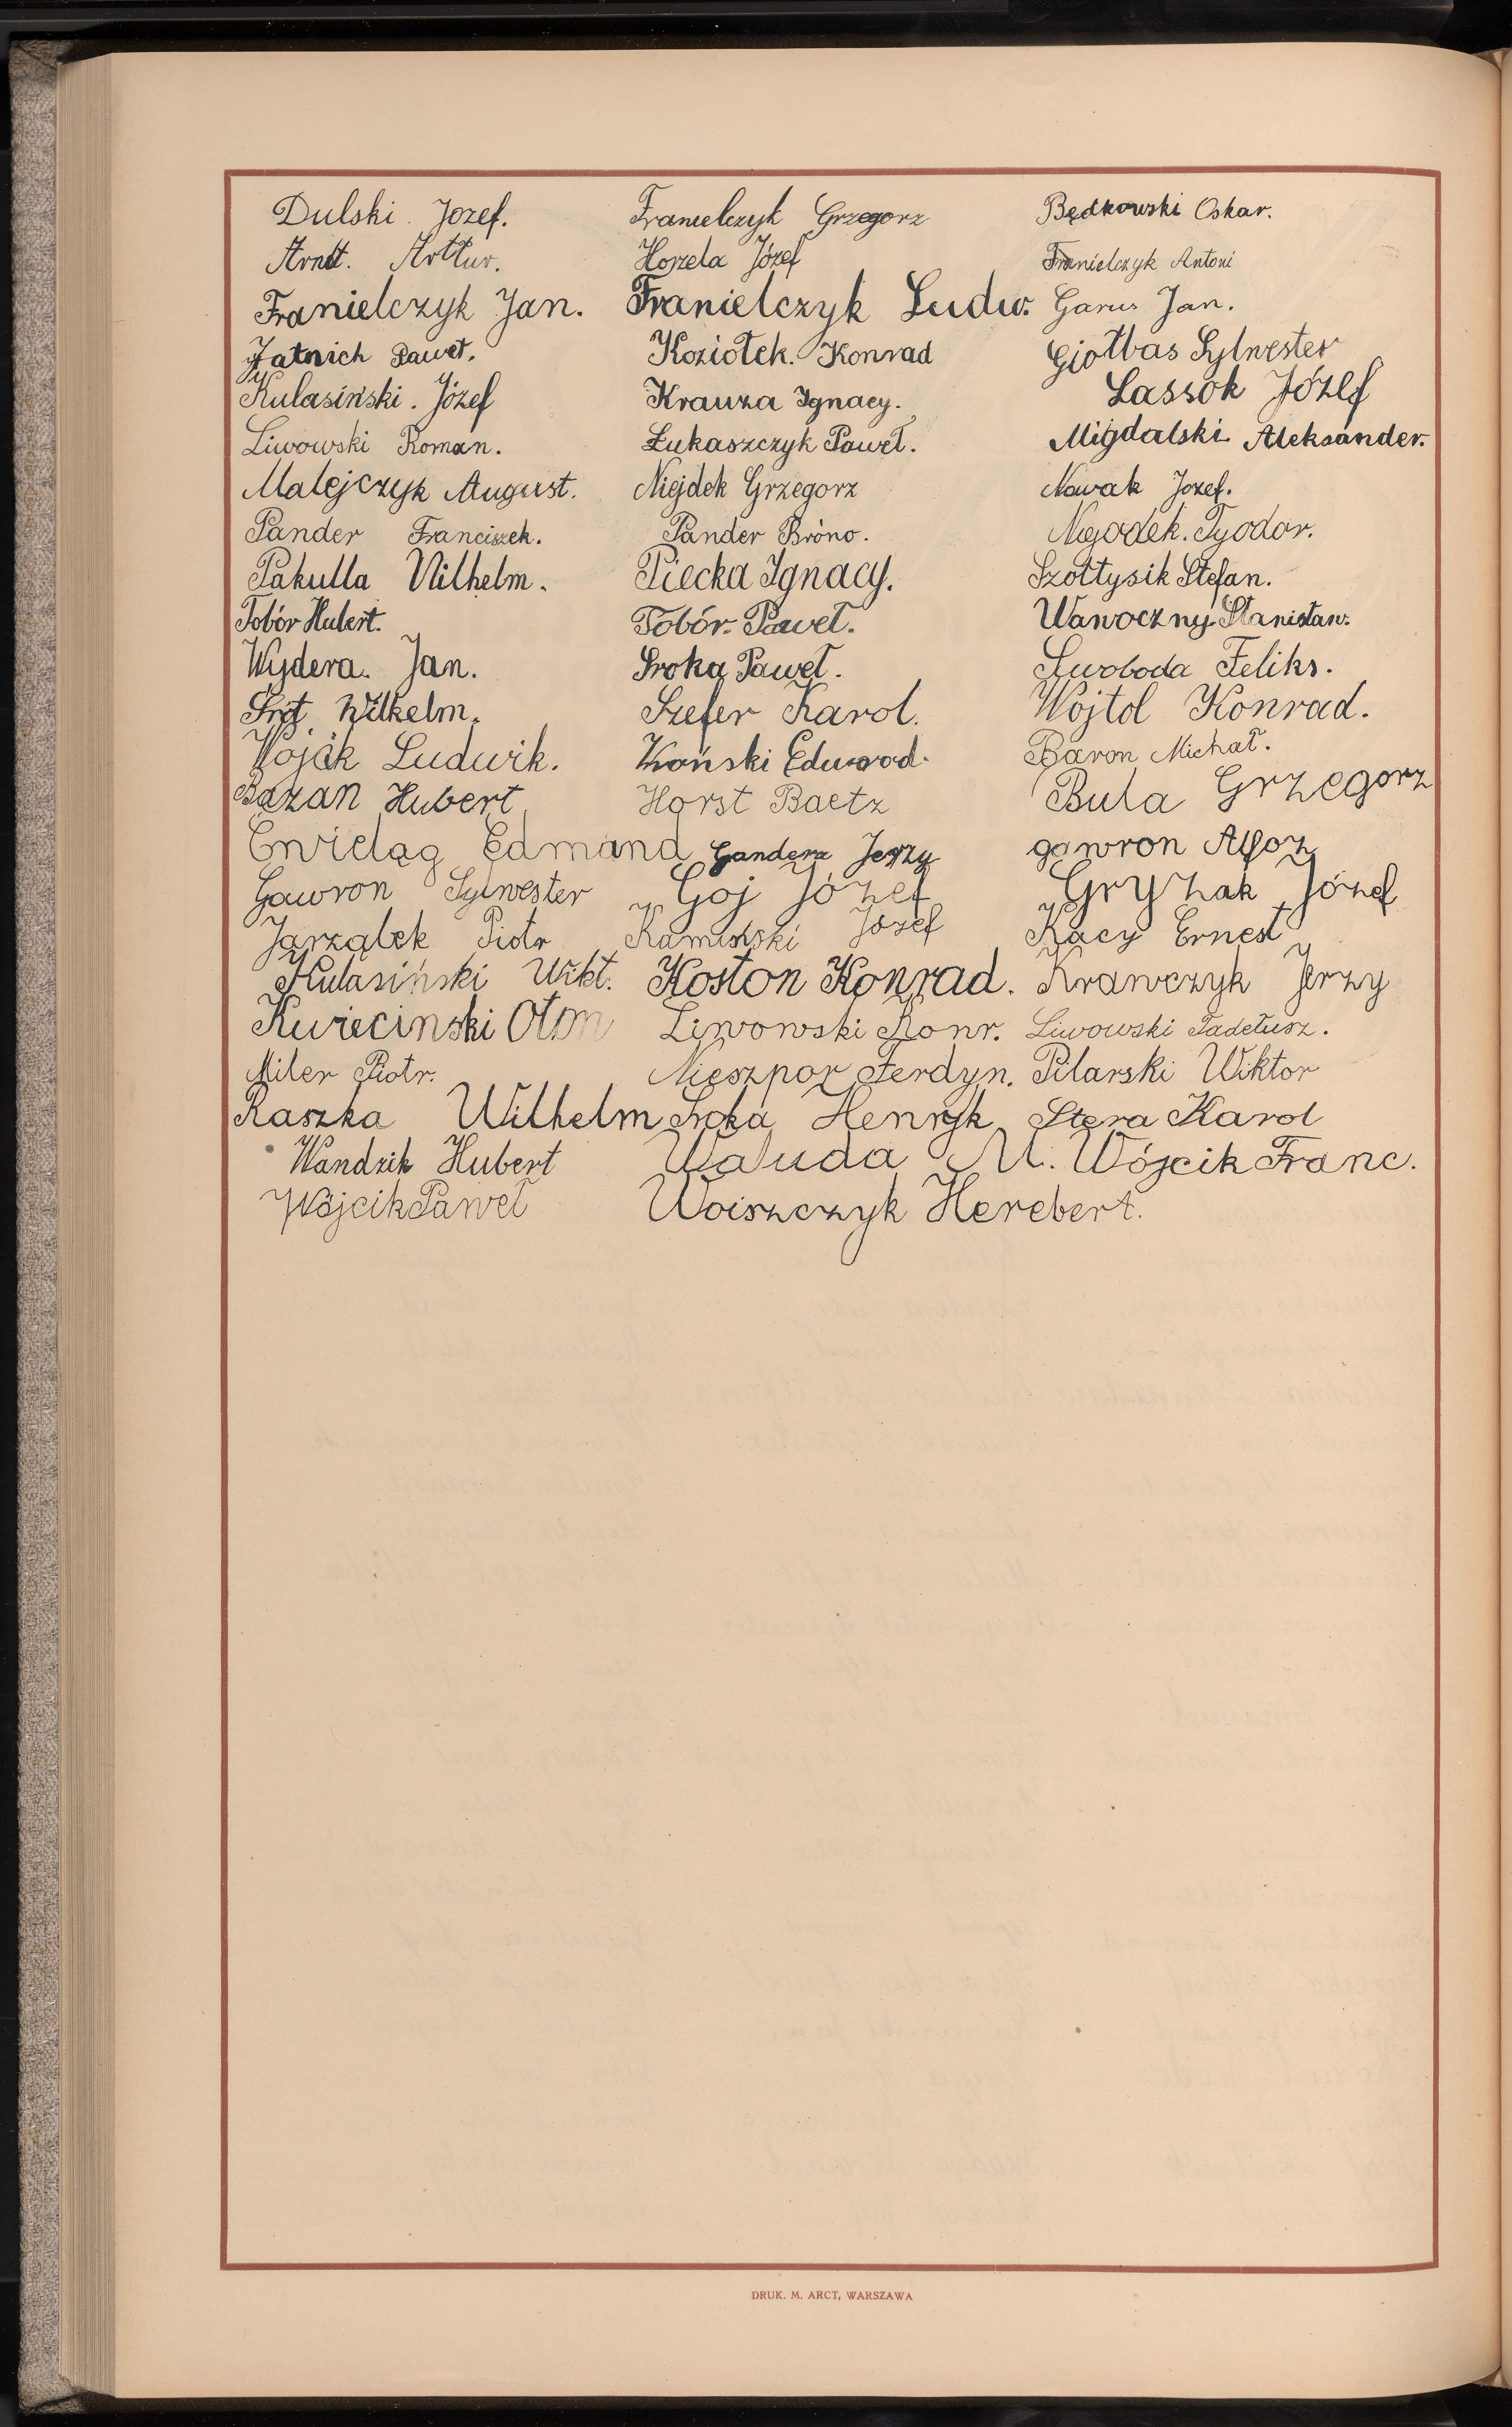 Dulski. Jozef. Franielczyk Grzegorz Będkowski Oskar.
Arndt. Arttur. Horzela Józef Franielczyk Antoni
Franielczyk Jan. Franielczyk Ludw. Garus Jan.
Jatnich Paweł. Koziołek. Konrad Giołbas Sylwester
Kulasiński. Józef Krauza Ignacy. Lassok Józef
Liwowski Roman. Łukaszczyk Paweł. Migdalski Aleksander.
Malejczyk August. Niejdek Grzegorz Nowak Jozef.
Pander Franciszek. Pander Bróno. Niejodek. Tyodor.
Pakulla Wilhelm. Piecka Ignacy. Szołtysik Stefan.
Tobór Hubert. Tobór. Paweł. Wawoczny Stanisław.
Wydera. Jan. Sroka Paweł. Swoboda Feliks.
Wilhelm. Szefer Karol. Wojtol Konrad.
Wojak Ludwik. Edward. Baron Michał.
Bazan Hubert Horst Baetz Bula Grzegorz
Ćwieląg Edmund Gandera Jerzy gawron Alfoz
Gawron Sylwester Goj Józef Gryzak Józef
Jarząbek Piotr Kamiński Józef Kacy Ernest
Kulasiński Wikt. Kostoń Konrad. Krawczyk Jerzy
Kwiecinski Oton Liwowski Konr. Liwowski Tadeusz.
Miler Piotr. Nieszpor Ferdyn. Pilarski Wiktor
Raszka Wilhelm Sroka Henryk Stera Karol
Wandzik Hubert Waluda M. Wójcik Franc.
Wójcik Paweł Woiszczyk Herebert.
DRUK. M. ARCT, WARSZAWA